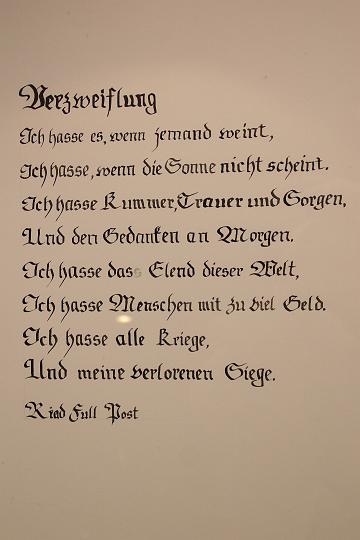 Verzweiflung
Ich hasse es, wenn jemand weint,
Ich hasse, wenn die Sonne nicht scheint.
Ich hasse Kummer, Trauer und Sorgen,
Und den Gedanken an Morgen.
Ich hasse dass Elend dieser Welt,
Ich hasse Menschen mit zu viel Geld.
Ich hasse alle Kriege,
Und meine verlorenen Siege.
Riad Full Post